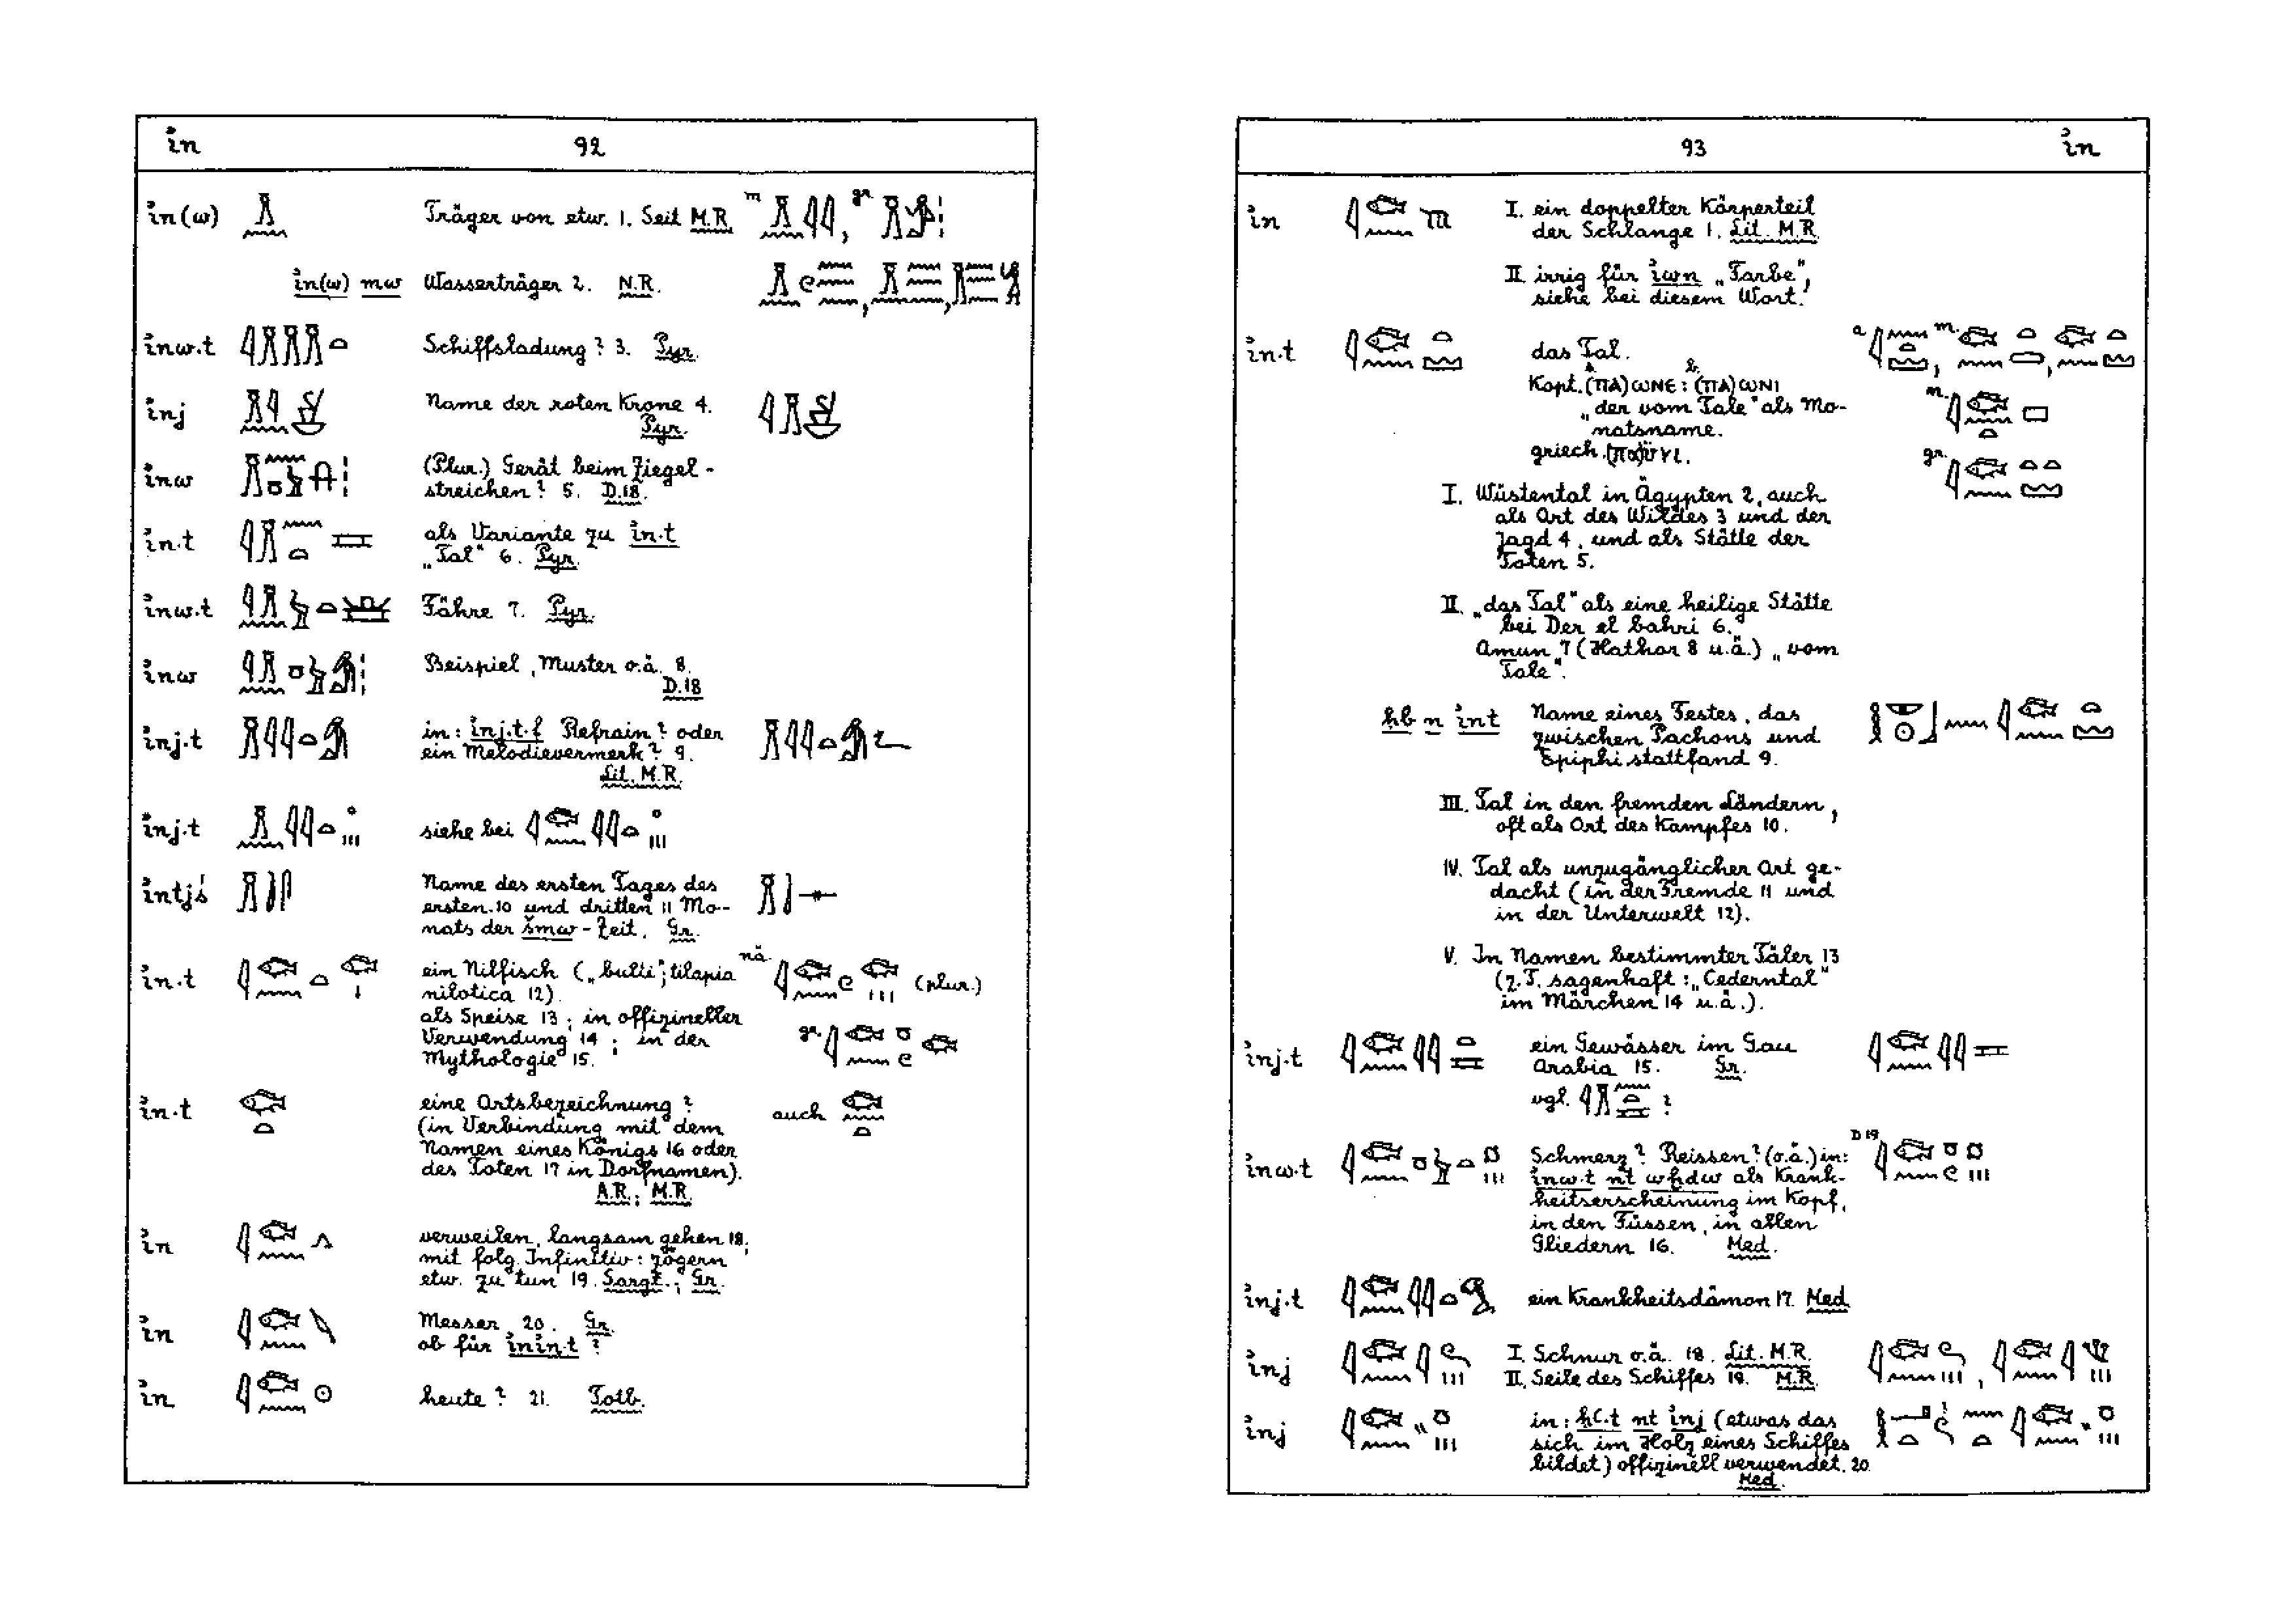 in 92
in(w) Träger von etw. 1. Seit M.R. m , gr.
in(w) mw Wasserträger 2. N.R. , ,
inw.t Schiffsladung? 3. Pyr.
inj Name der roten Krone 4.
Pyr.
inw (Plur.) Gerät beim Ziegel-
streichen? 5. D.18.
in.t als Variante zu in.t
„Tal" 6. Pyr.
inw.t Fähre 7. Pyr.
inw Beispiel, Muster o.ä. 8.
D.18
inj.t in: inj.t.f Refrain? oder
ein Melodievermerk? 9.
Lit. M.R.
inj.t siehe bei
intjś Name des ersten Tages des
ersten 10 und dritten 11 Mo-
nats der šmw-Zeit. Gr.
in.t ein Nilfisch („bulti"; tilapia nä. (plur.)
nilotica 12).
als Speise 13; in offizineller
Verwendung 14; in der gr.
Mythologie 15.
in.t eine Ortsbezeichnung? auch
(in Verbindung mit dem
Namen eines Königs 16 oder
des Toten 17 in Dorfnamen).
A.R.; M.R.
in verweilen, langsam gehen 18;
mit folg. Infinitiv: zögern
etw. zu tun 19. Sargt.; Gr.
in Messer 20. Gr.
ob für inin.t?
in heute? 21. Totb.
93 in
in I. ein doppelter Körperteil
der Schlange 1. Lit. M.R.
II. irrig für iwn „Farbe",
siehe bei diesem Wort.
in.t das Tal. a , m. ,
Kopt. (ΠΑ)ωΝЄ : (ΠΑ)ωΝΙ
„der vom Tale" als Mo- m.
natsname.
griech. (πα)ϋνι. gr.
I. Wüstental in Ägypten 2, auch
als Ort des Wildes 3 und der
Jagd 4, und als Stätte der
Toten 5.
II. „das Tal" als eine heilige Stätte
bei Der el bahri 6.
Amun 7 (Hathor 8 u.ä.) „vom
Tale".
ḥb n int Name eines Festes, das
zwischen Pachons und
Epiphi stattfand 9.
III. Tal in den fremden Ländern,
oft als Ort des Kampfes 10.
IV. Tal als unzugänglicher Ort ge-
dacht (in der Fremde 11 und
in der Unterwelt 12).
V. In Namen bestimmter Täler 13
(z.T. sagenhaft: „Cederntal"
im Märchen 14 u.ä.).
inj.t ein Gewässer im Gau
Arabia 15. Gr.
vgl. ?
inw.t Schmerz? Reissen? (o.ä.) in: D 19
inw.t nt wḫdw als Krank-
heitserscheinung im Kopf,
in den Füssen, in allen
Gliedern 16. Med.
inj.t ein Krankheitsdämon 17. Med.
inj I. Schnur o.ä. 18. Lit. M.R. ,
II. Seile des Schiffes 19. M.R.
inj in: ḥꜥ.t nt inj (etwas das
sich im Holz eines Schiffes
bildet) offizinell verwendet. 20
Med.